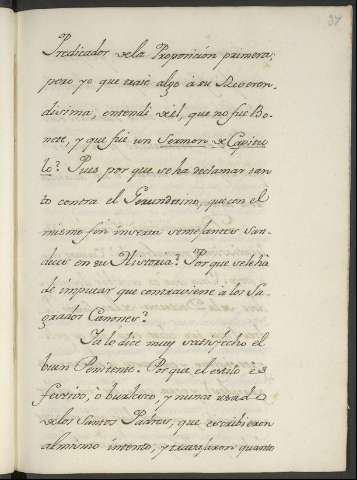 37
Predicador dela Proposicion primera;
pero yo que traté algo à su Reveren-
dísima, entendí del, que no fué Bo-
nete, y que fué un Sermon de Capitu
lo? Pues por que se ha declamar tan
to contra el Gerundino, que con el
mismo fin inserta semejantes San-
deces en su Historia? Por que se le hà
de imputar que contraviene à los Sa-
grados Canones?
Ya lo dice muy satisfecho el
buen Penitente. Por que el estilo es
festivo, ò burlesco, y nunca usado
delos Santos Padres, que escribieron
al mismo intento, y trabajaron quanto